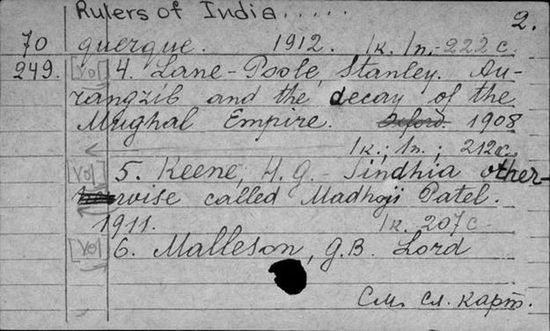 Rulers of India.....
2.
70 querque. 1912. 1к. 1п. 222 с.
249. [Vol] 4. Lane-Poole, Stanley. Au-
rangzib and the decay of the
Mughal Empire. Oxford. 1908
1к.; 1п.; 212 с.
[Vol] 5. Keene, H. G. Sindhia other-
wise called Madhoji Patel.
1911. 1к. 207 с.
[Vol] 6. Malleson, G.B. Lord
См. сл. карт.